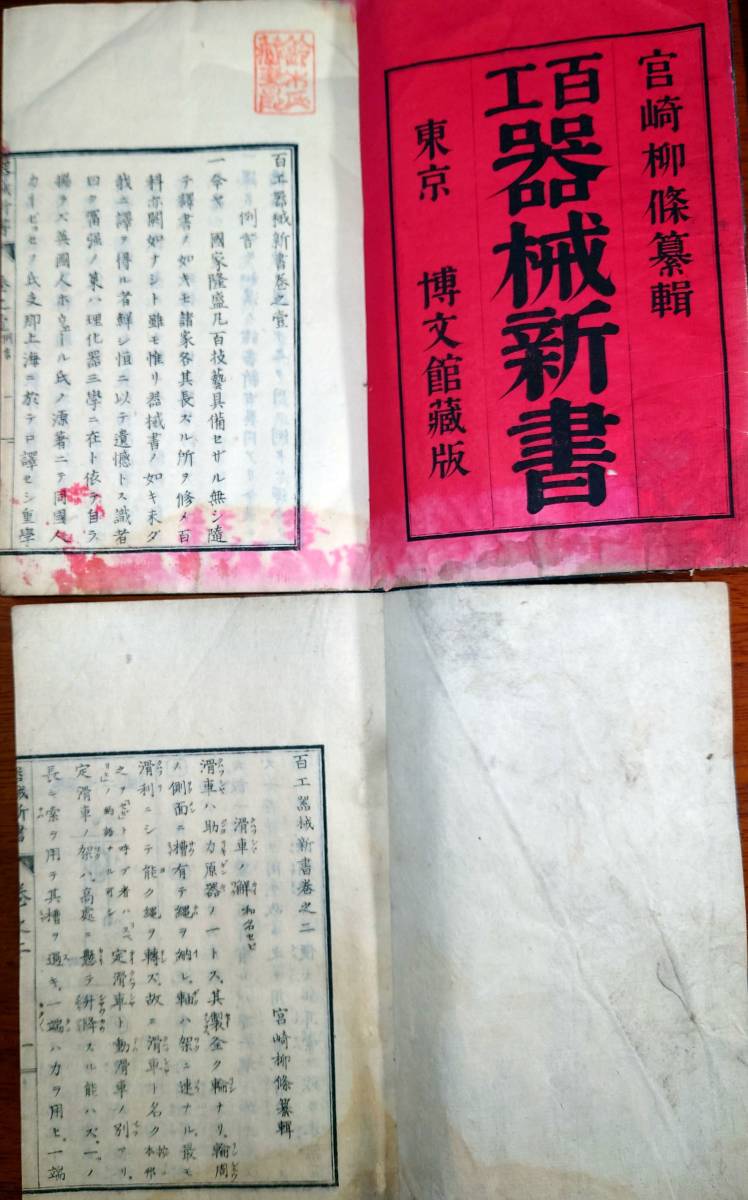 宮崎柳條纂輯
百工
器械新書
東京 博文館藏版
鈴木氏
藏書印
百工器械新書卷之壹
例言
一今ヤ國家隆盛凡百技藝具備セザル無シ隨
テ譯書ノ如キモ諸家各其長ズル所ヲ修メ百
科亦闕如ナシト雖モ惟リ器械書ノ如キ未ダ
我ニ譯ヲ得ル者鮮シ恒ニ以テ遺憾トス識者
曰ク富强ノ業ハ理化器三學ニ在ト依テ自ラ
揣ラズ英國人ホウェール氏ノ原著ニテ同國人
氏支那上海ニ於テ口譯セシ重學
百工器械新書卷之二
宮崎柳條纂輯
滑車ノ解 和名セビ
滑車ハ助力原器ノ一トス其製全ク輪ナリ輪周
ノ側面ニ槽有テ繩ヲ納レ軸ハ架ニ連ナル最モ
滑利ニシテ能ク繩ヲ轉ズ故ニ滑車ト名ク本邦
之ヲ ト呼ブ者ハ
定滑車ト動滑車ノ別アリ
定滑車ノ架ハ高處ニ懸テ升降スル能ハズ一ノ
長キ索ヲ用テ其槽ヲ過キ一端ハ力ヲ用上一端
器械新書 卷之二